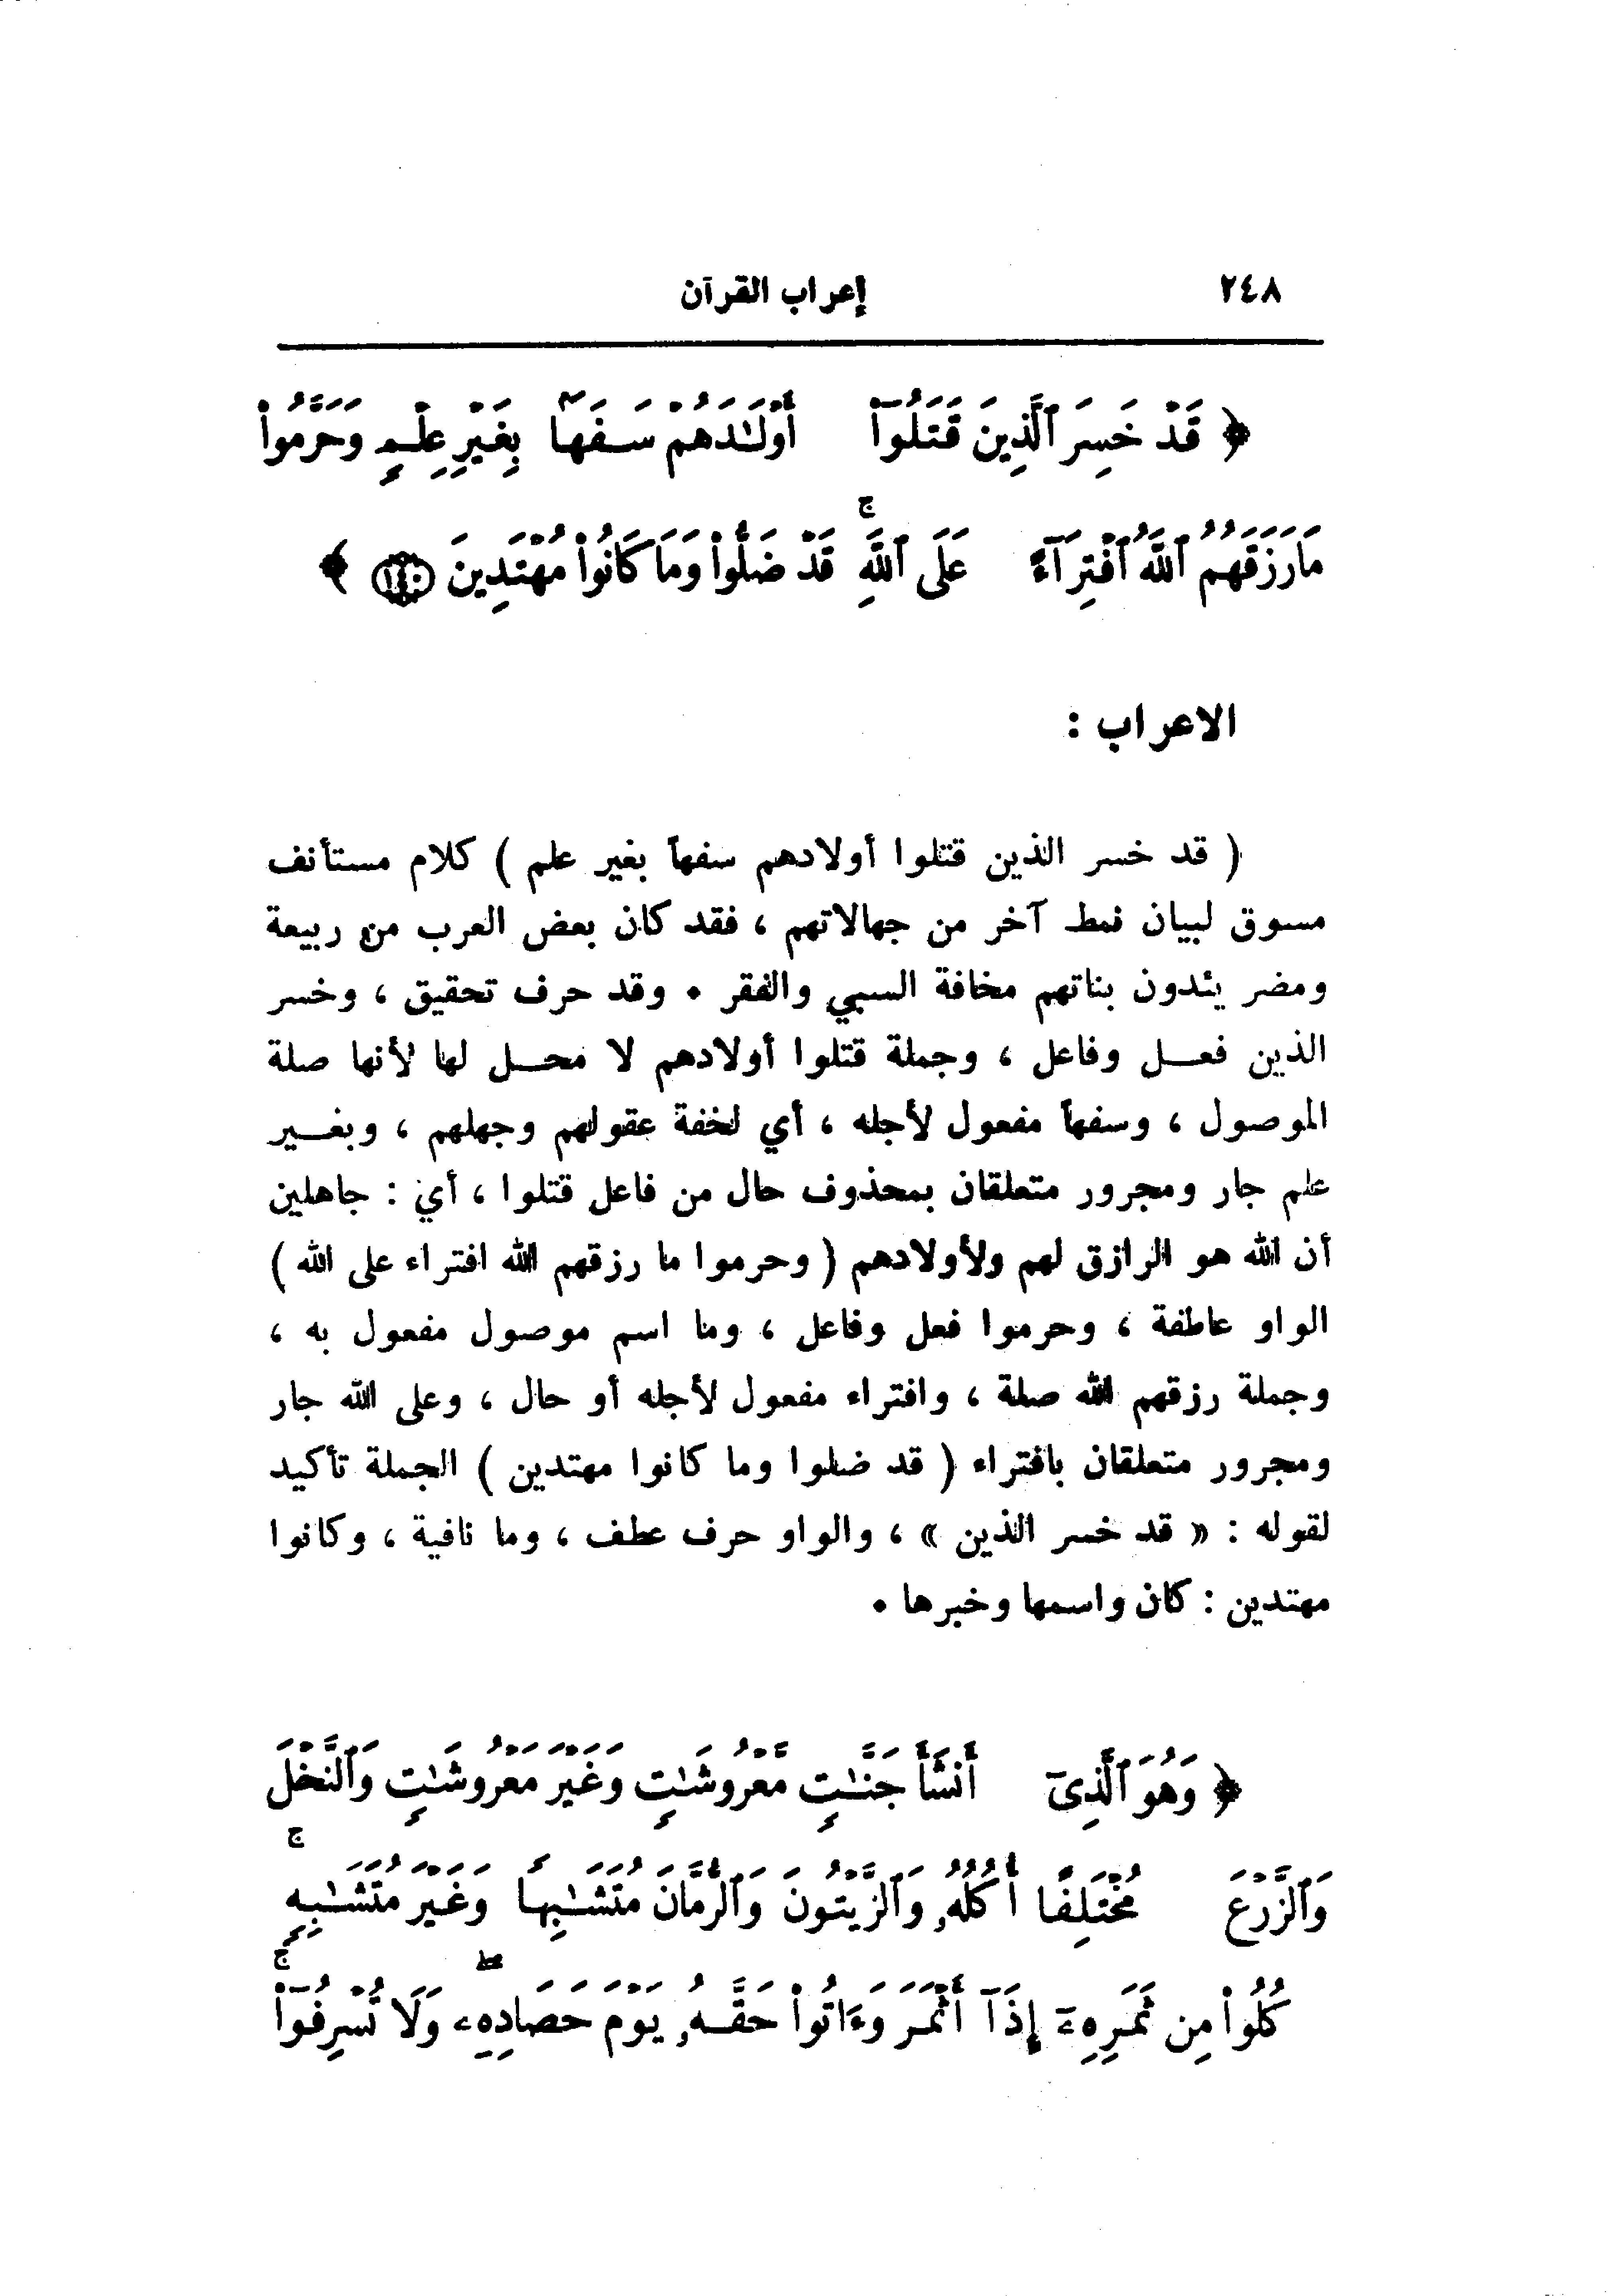 ٢٤٨ إعراب القرآن
﴿ قَدْ خَسِرَ ٱلَّذِينَ قَتَلُوٓا۟ أَوْلَـٰدَهُمْ سَفَهًۢا بِغَيْرِ عِلْمٍ وَحَرَّمُوا۟
مَا رَزَقَهُمُ ٱللَّهُ ٱفْتِرَآءً عَلَى ٱللَّهِ ۚ قَدْ ضَلُّوا۟ وَمَا كَانُوا۟ مُهْتَدِينَ ١٤٠ ﴾
الاعراب :
( قد خسر الذين قتلوا أولادهم سفهاً بغير علم ) كلام مستأنف
مسوق لبيان نمط آخر من جهالاتهم ، فقد كان بعض العرب من ربيعة
ومضر يئدون بناتهم مخافة السبي والفقر . وقد حرف تحقيق ، وخسر
الذين فعل وفاعل ، وجملة قتلوا أولادهم لا محل لها لأنها صلة
الموصول ، وسفهاً مفعول لأجله ، أي لخفة عقولهم وجهلهم ، وبغير
علم جار ومجرور متعلقان بمحذوف حال من فاعل قتلوا ، أي : جاهلين
أن الله هو الرازق لهم ولأولادهم ( وحرموا ما رزقهم الله افتراء على الله )
الواو عاطفة ، وحرموا فعل وفاعل ، وما اسم موصول مفعول به ،
وجملة رزقهم الله صلة ، وافتراء مفعول لأجله أو حال ، وعلى الله جار
ومجرور متعلقان بافتراء ( قد ضلوا وما كانوا مهتدين ) الجملة تأكيد
لقوله : « قد خسر الذين » ، والواو حرف عطف ، وما نافية ، وكانوا
مهتدين : كان واسمها وخبرها .
﴿ وَهُوَ ٱلَّذِىٓ أَنشَأَ جَنَّـٰتٍ مَّعْرُوشَـٰتٍ وَغَيْرَ مَعْرُوشَـٰتٍ وَٱلنَّخْلَ
وَٱلزَّرْعَ مُخْتَلِفًا أُكُلُهُۥ وَٱلزَّيْتُونَ وَٱلرُّمَّانَ مُتَشَـٰبِهًا وَغَيْرَ مُتَشَـٰبِهٍ ۚ
كُلُوا۟ مِن ثَمَرِهِۦٓ إِذَآ أَثْمَرَ وَءَاتُوا۟ حَقَّهُۥ يَوْمَ حَصَادِهِۦ ۖ وَلَا تُسْرِفُوٓا۟ ۚ